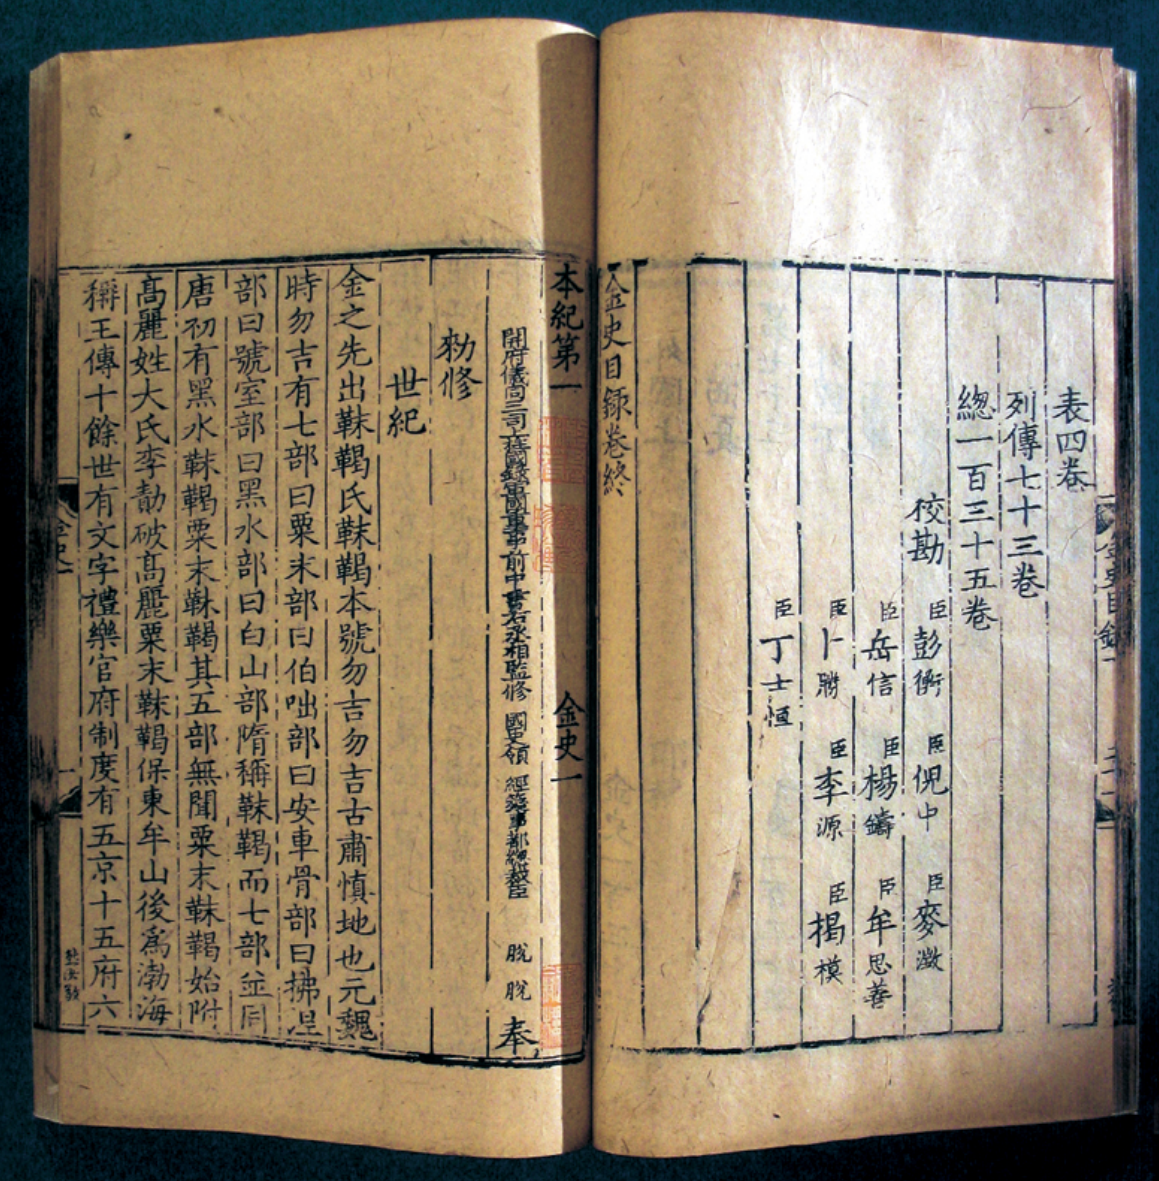 表四卷
列傳七十三卷
緫一百三十五卷
校勘 臣彭衡 臣倪中 臣麥澂
臣岳信 臣楊鑄 臣牟思善
臣卜勝 臣李源 臣楊模
臣丁士恒
金史目録卷終
本紀第一 金史一
開府儀同三司上柱國録軍國重事前中書右丞相監修 國史領 經筵事都緫裁臣 脫 脫 奉
勑修
世紀
金之先出靺鞨氏靺鞨本號勿吉勿吉古肅慎地也元魏
時勿吉有七部曰粟末部曰伯咄部曰安車骨部曰拂涅
部曰號室部曰黑水部曰白山部隋稱靺鞨而七部並同
唐初有黑水靺鞨粟末靺鞨其五部無聞粟末靺鞨始附
髙麗姓大氏李勣破髙麗粟末靺鞨保東牟山後爲渤海
稱王傳十餘世有文字禮樂官府制度有五京十五府六